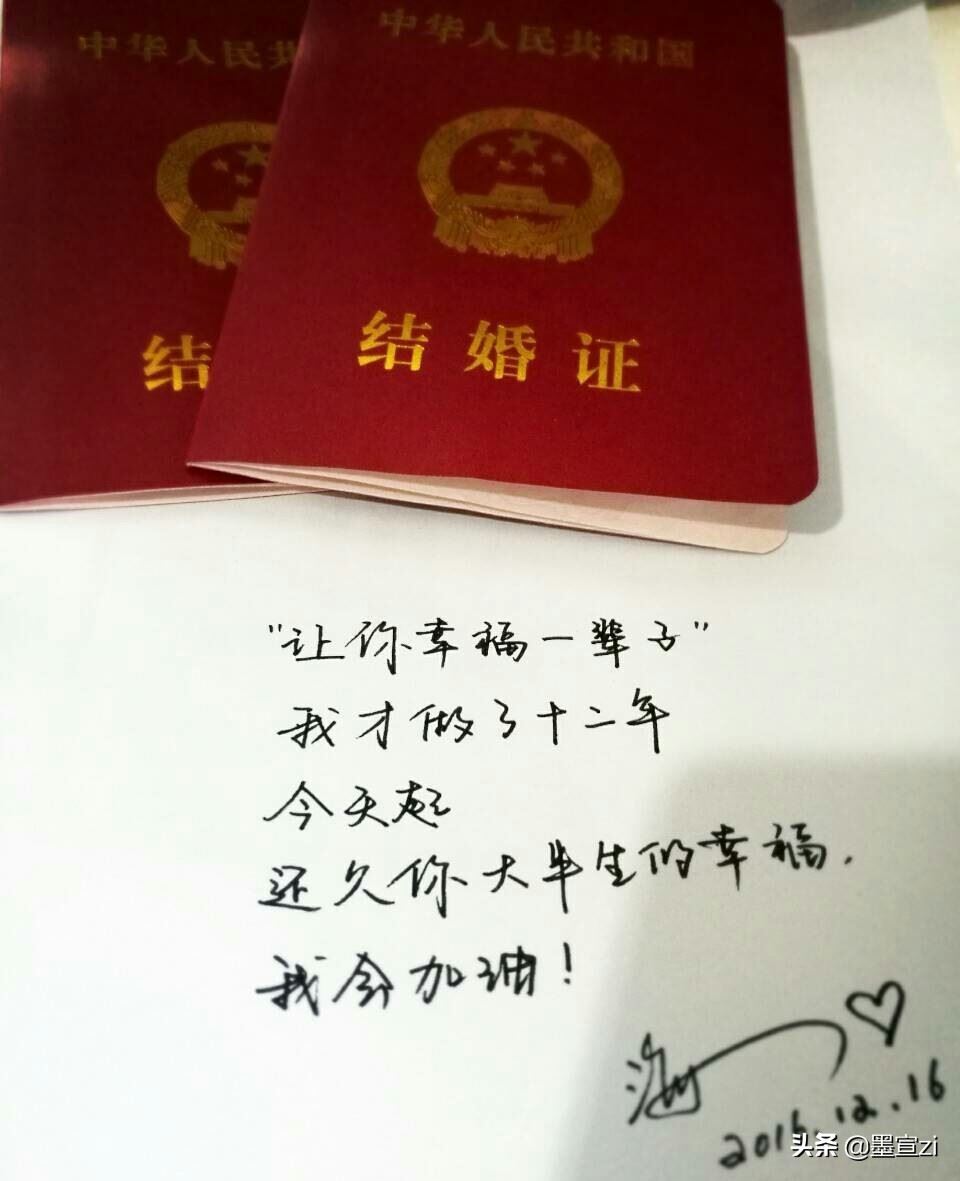 中华人民共
中华人民共和国
结
结婚证
"让你幸福一辈子"
我才做了十二年
今天起
还欠你大半生的幸福.
我会加油!
海
2016.12.16
头条 @墨宣zi